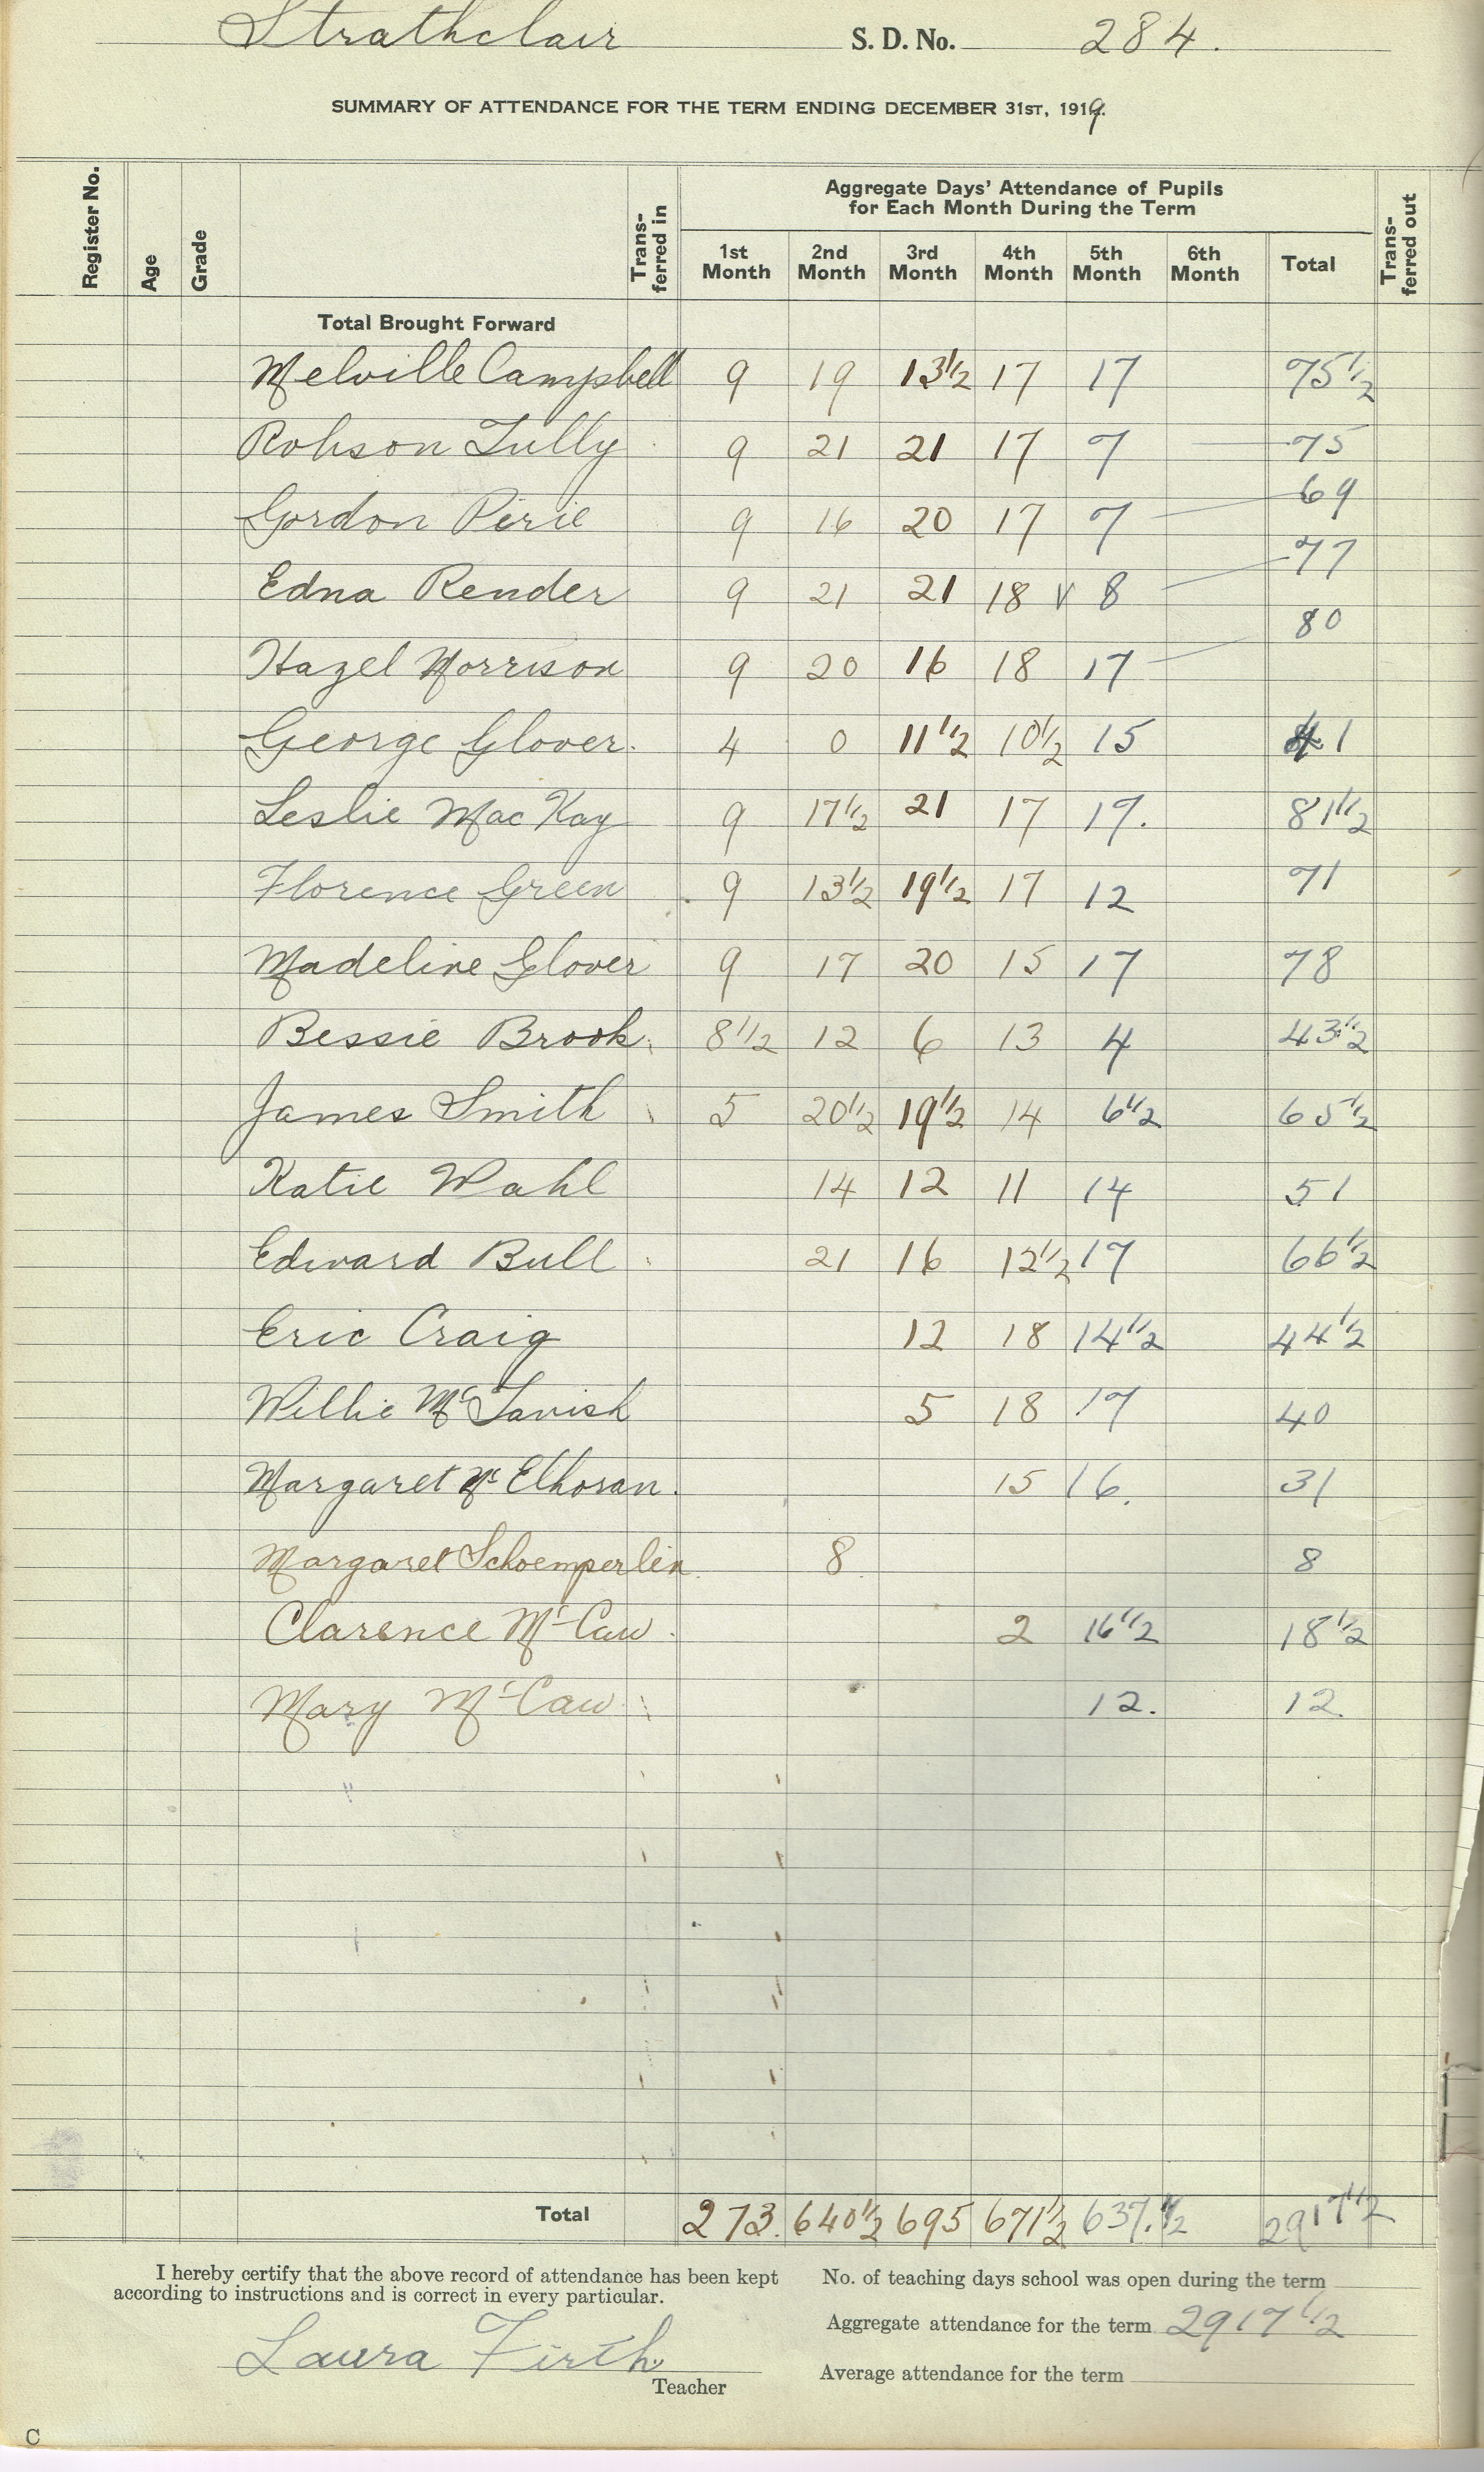 Strathclair S. D. No. 284.
SUMMARY OF ATTENDANCE FOR THE TERM ENDING DECEMBER 31ST, 1919.
Register No. Age Grade Trans-ferred in Aggregate Days' Attendance of Pupils Trans-ferred out
for Each Month During the Term
1st Month 2nd Month 3rd Month 4th Month 5th Month 6th Month Total
Total Brought Forward
Melville Campbell 9 19 13 1/2 17 17 75 1/2
Robson Tully 9 21 21 17 7 75
Gordon Pirie 9 16 20 17 7 69
Edna Render 9 21 21 18 v 8 77
Hazel Morrison 9 20 16 18 17 80
George Glover. 4 0 11 1/2 10 1/2 15 41
Leslie MacKay 9 17 1/2 21 17 17. 81 1/2
Florence Green 9 13 1/2 19 1/2 17 12 71
Madeline Glover 9 17 20 15 17 78
Bessie Brook 8 1/2 12 6 13 4 43 1/2
James Smith 5 20 1/2 19 1/2 14 6 1/2 65 1/2
Katie Wahl 14 12 11 14 51
Edward Bull 21 16 12 1/2 17 66 1/2
Eric Craig 12 18 14 1/2 44 1/2
Willie McTavish 5 18 17 40
Margaret McElhoran. 15 16. 31
Margaret Schoemperlen. 8. 8
Clarence McCaw. 2 16 1/2 18 1/2
Mary McCaw 12. 12.
Total 273. 640 1/2 695 671 1/2 637. 1/2 2917 1/2
I hereby certify that the above record of attendance has been kept
according to instructions and is correct in every particular.
No. of teaching days school was open during the term
Aggregate attendance for the term 2917 1/2
Laura Firth
Teacher
Average attendance for the term
C